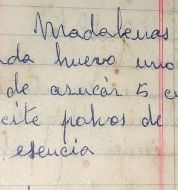 Madalenas
da huevo uno
de azucár 5 c
cite polvos de
esencia